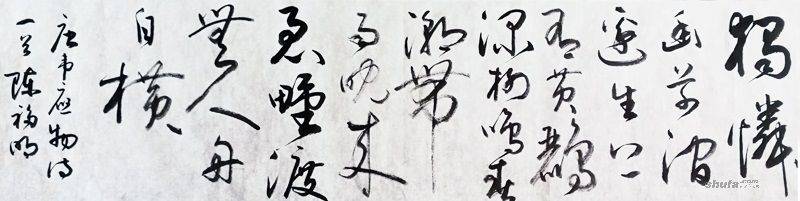 獨憐
幽草澗
邊生上
有黄鸝
深樹鳴春
潮帶
雨晚來
急野渡
無人舟
自横
唐韋應物诗
一首 陳福明